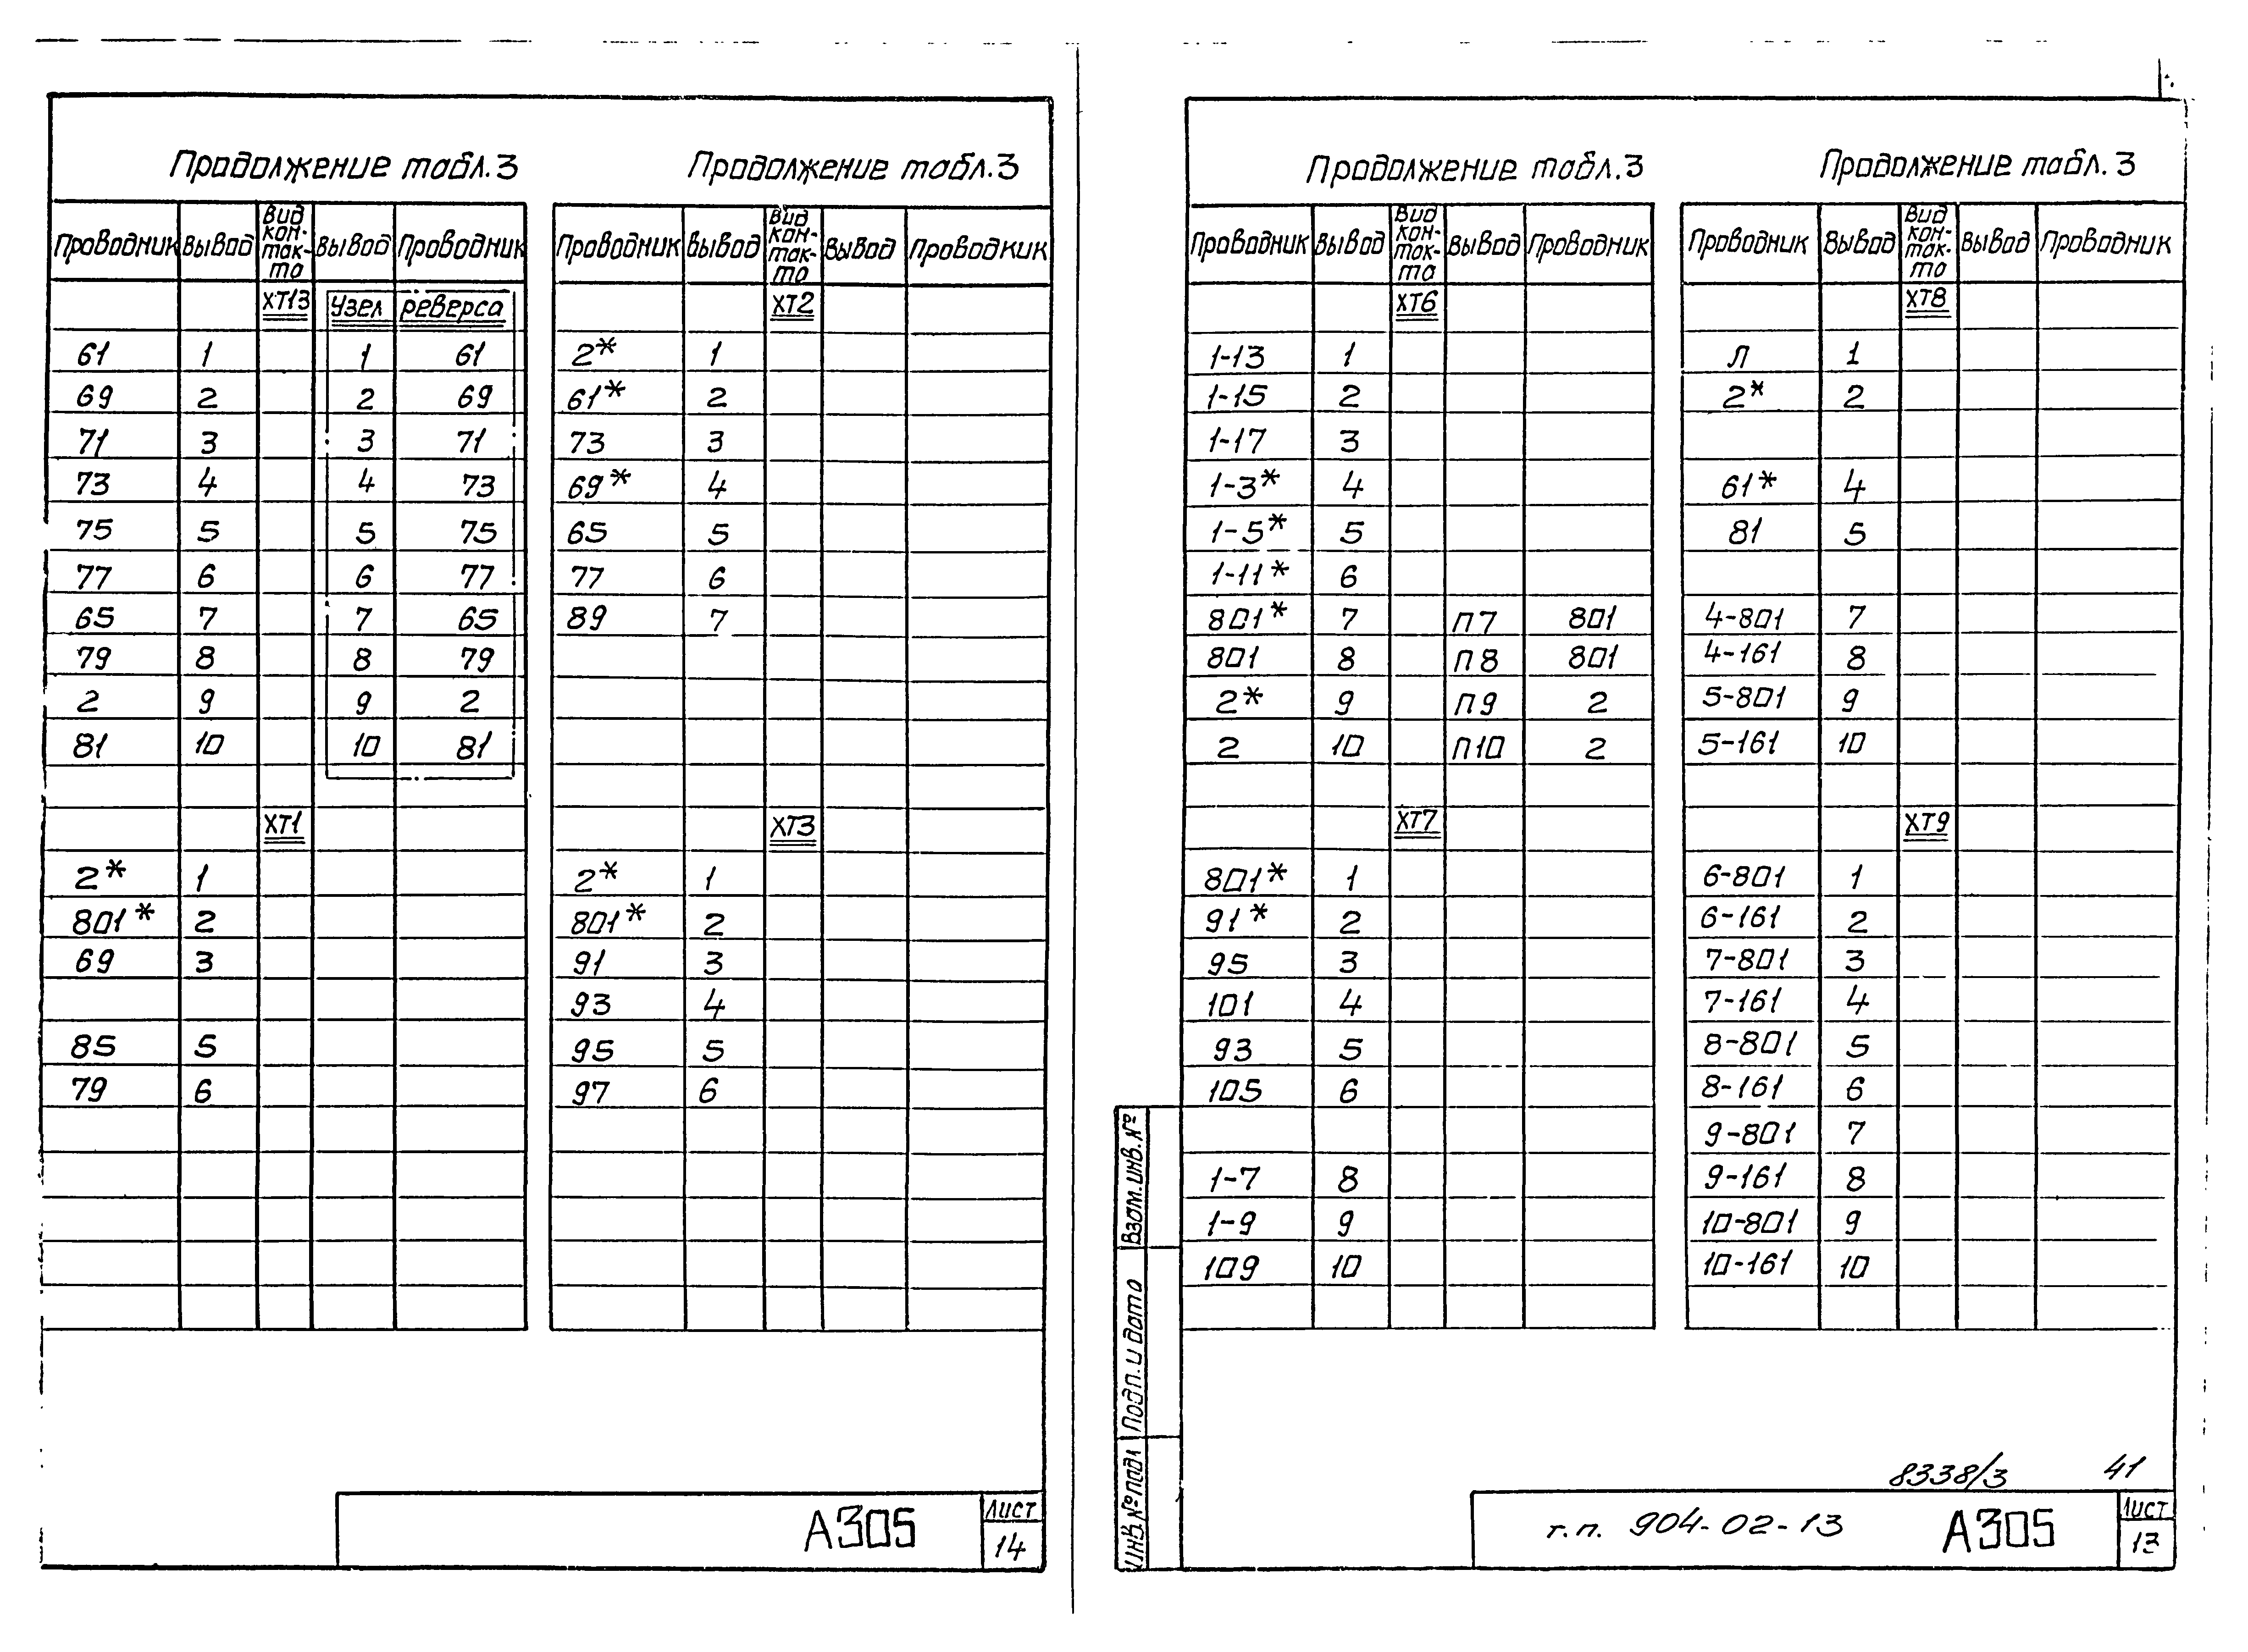 Продолжение табл.3
Проводник Вывод Вид кон-так-та Вывод Проводник
ХТ13 Узел реверса
61 1 1 61
69 2 2 69
71 3 3 71
73 4 4 73
75 5 5 75
77 6 6 77
65 7 7 65
79 8 8 79
2 9 9 2
81 10 10 81
ХТ1
2* 1
801* 2
69 3
85 5
79 6
Продолжение табл.3
Проводник Вывод Вид кон-так-та Вывод Проводник
ХТ2
2* 1
61* 2
73 3
69* 4
65 5
77 6
89 7
ХТ3
2* 1
801* 2
91 3
93 4
95 5
97 6
А305
Лист
14
Продолжение табл.3
Проводник Вывод Вид кон-так-та Вывод Проводник
ХТ6
1-13 1
1-15 2
1-17 3
1-3* 4
1-5* 5
1-11* 6
801* 7 П7 801
801 8 П8 801
2* 9 П9 2
2 10 П10 2
ХТ7
801* 1
91* 2
95 3
101 4
93 5
105 6
1-7 8
1-9 9
109 10
Продолжение табл.3
Проводник Вывод Вид кон-так-та Вывод Проводник
ХТ8
Л 1
2* 2
61* 4
81 5
4-801 7
4-161 8
5-801 9
5-161 10
ХТ9
6-801 1
6-161 2
7-801 3
7-161 4
8-801 5
8-161 6
9-801 7
9-161 8
10-801 9
10-161 10
Взам.инв.№
Подп. и дата
Инв.№подл
8338/3 41
т.п. 904-02-13 А305
Лист
13